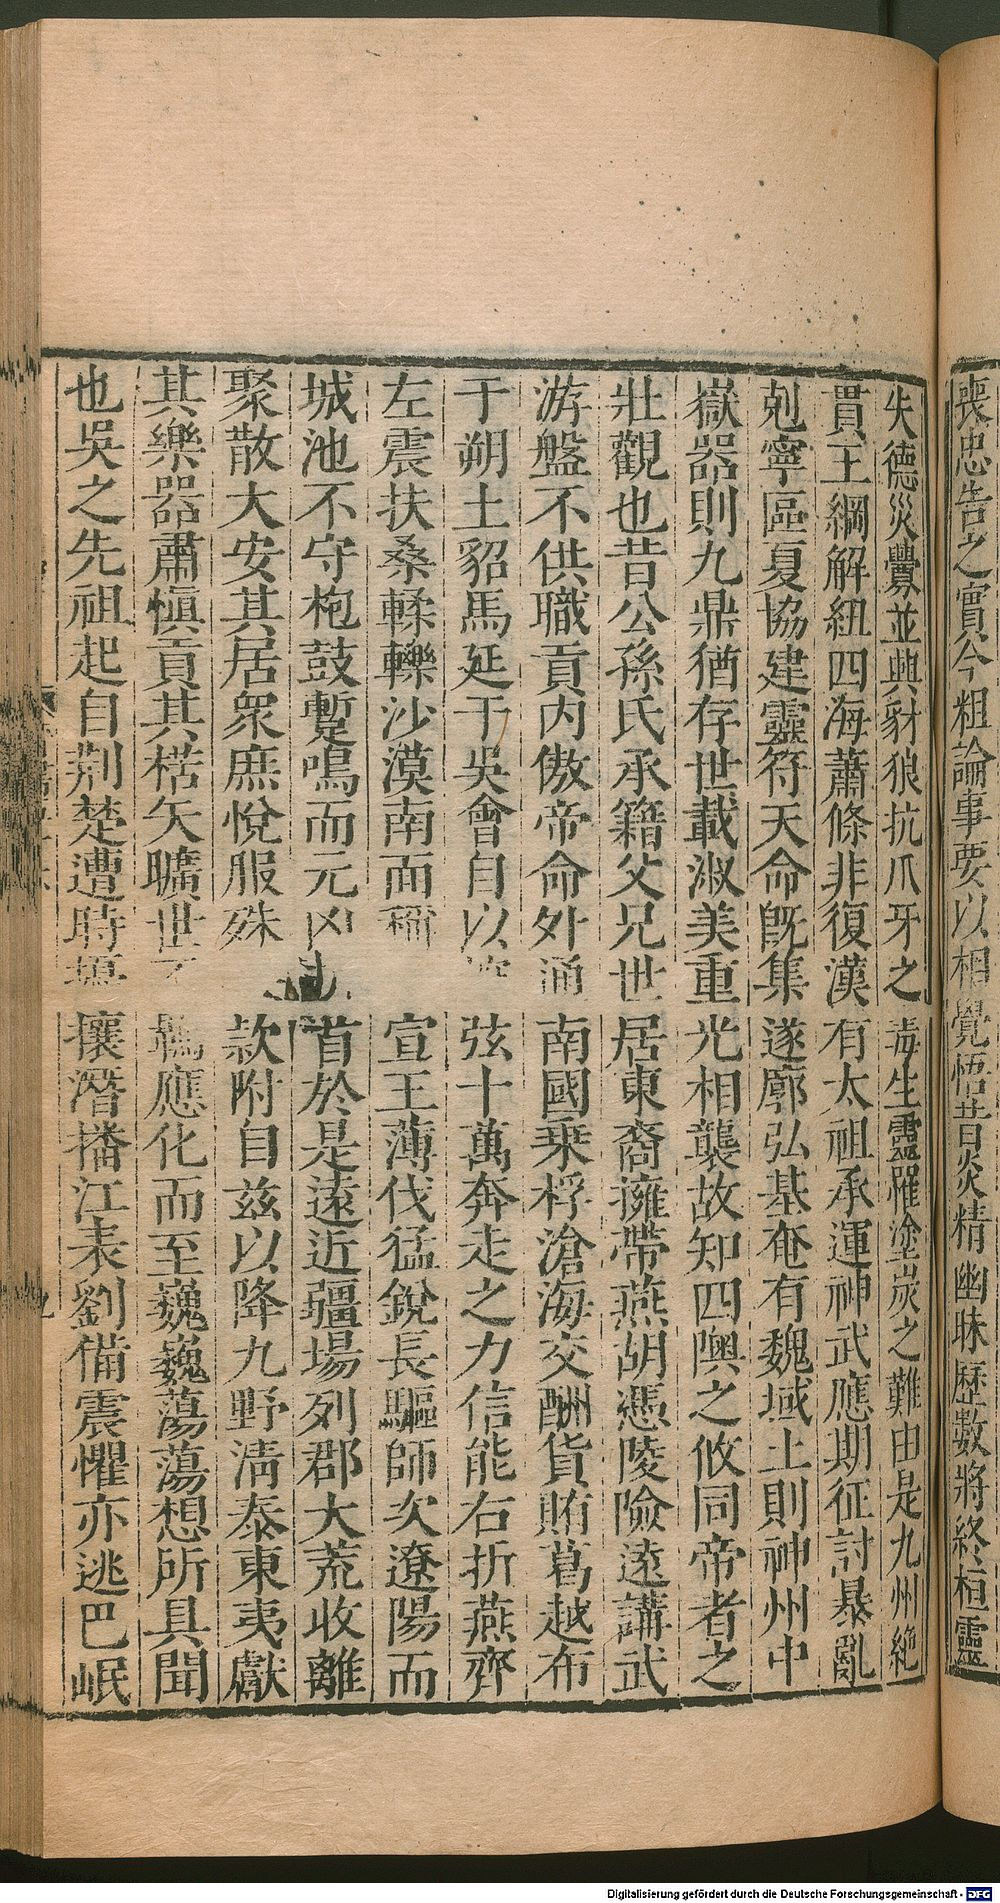 喪忠告之實今粗論事要以相覺悟昔炎精幽昧歷數將終桓靈
失德災釁並興豺狼抗爪牙之毒生靈罹塗炭之難由是九州絶
貫王綱解紐四海蕭條非復漢有太祖承運神武應期征討暴亂
剋寧區夏協建靈符天命旣集遂廓弘基奄有魏域土則神州中
嶽器則九鼎猶存世載淑美重光相襲故知四隩之攸同帝者之
壯觀也昔公孫氏承籍父兄世居東裔擁帶燕胡憑陵險遠講武
游盤不供職貢内傲帝命外通南國乗桴滄海交酬貨賄葛越布
于朔土貂馬延于吳會自以控弦十萬奔走之力信能右折燕齊
左震扶桑輮轢沙漠南面稱宣王薄伐猛銳長驅師次遼陽而
城池不守枹鼓暫鳴而元凶折首於是遠近疆場列郡大荒收離
聚散大安其居衆庶悅服殊俗款附自兹以降九野清泰東夷獻
其樂器肅愼貢其楛矢曠世不羈應化而至巍巍蕩蕩想所具聞
也吳之先祖起自荆楚遭時擾攘潛播江表劉備震懼亦逃巴岷
九
Digitalisierung gefördert durch die Deutsche Forschungsgemeinschaft - DFG